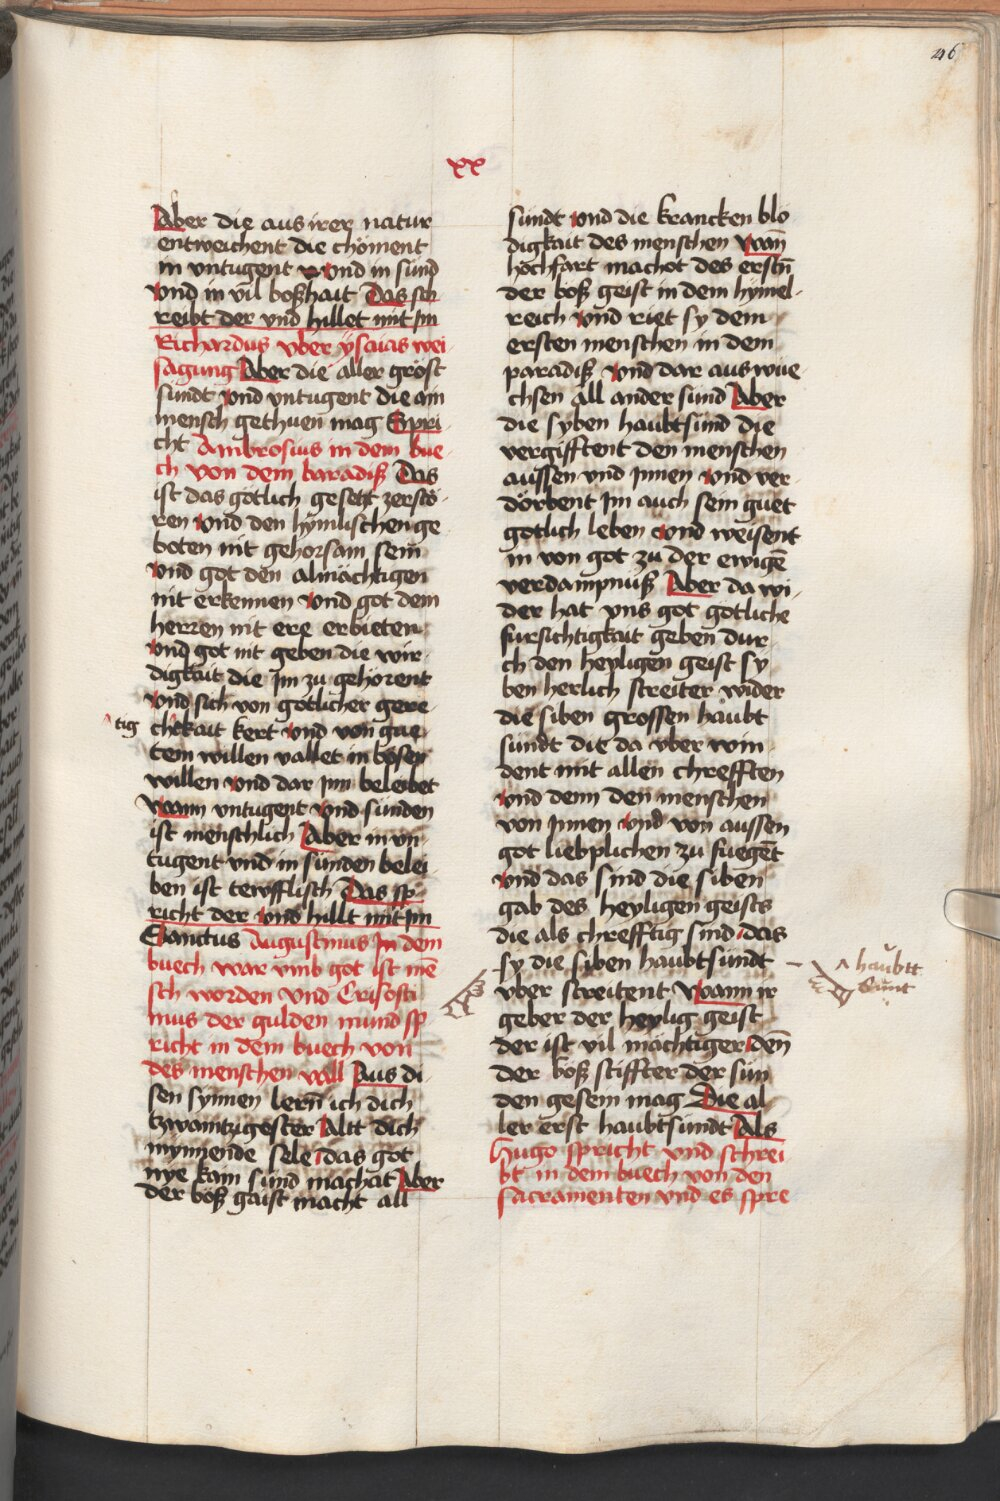 46
xx
Aber die aus irer natur
entweichent die chöment
in vntugent vnd in sünd
vnd in vil boßhait Das sch
reibt der vnd hillet mit im
Richardus vber ysaias wei
sagung Aber die aller gröst
sündt vnd vntugent die ain
mensch gethuen mag Spri
cht Ambrosius in dem bue
ch von dem baradiß Das
ist das götlich gesetz zerstö
ren vnd den hymlischen ge
boten nit gehorsam sein
vnd got den almächtigen
nit erkennen vnd got dem
herren nit ere erbieten
vnd got nit geben die wir
digkait die im zu gehörent
vnd sich von gotlicher gere
tig chtkait kert vnd von gue
tem willen vallet in bösen
willen vnd dar jnn beleibet
Wann vntugent vnd sünden
ist menschlich Aber in vn
tugent vnd in sünden belei
ben ist tewfflisch Das sp
richt der vnd hillt mit im
Sanctus Augustinus in dem
buech war vmb got ist mē
sch worden vnd Crisosti
mus der gulden mund sp
richt in dem buech von
des menschen vall Aus di
sen synnen lern̄ ich dich
tzwaintzigister Altt dich
mynnende sele das got
nye kain sünd machat Aber
der böß gaist macht all
sündt vnd die krancken blö
digkait des menschen Wan̄
hochfart machot des erstn̄
der böß geist in dem hymel
reich vnd riet sy dem
ersten menschen in dem
paradiß vnd dar aus wue
chsen all ander sünd Aber
die syben haubtsünd die
vergifftent den menschen
aussen vnd jnnen vnd ver
dörbent im auch sein guet
gotlich leben vnd weisent
in von got zu der ewigē
verdampnuß Aber da wi
der hat vns got gotliche
fursichtigkait geben dur
ch den heyligen geist sy
ben herlich streiter wider
die siben grossen haubt
sündt die da vber win
dent mit allen chrefften
vnd denn den menschen
von jnnen vnd von aussen
got lieblichen zu fuegēt
vnd das sind die siben
gab des heyligen geists
die als chrefftig sind das
sy die siben haubtsündt
vber streitent Wann ir
geber der heylig geist
der ist vil mächtiger den̄
der böß stiffter der sün
den gesein mag Die al
ler erst haubtsündt Als
Hugo spricht vnd schrei
bt in dem buech von den
sacramenten vnd es spre
haubtt
Sunt